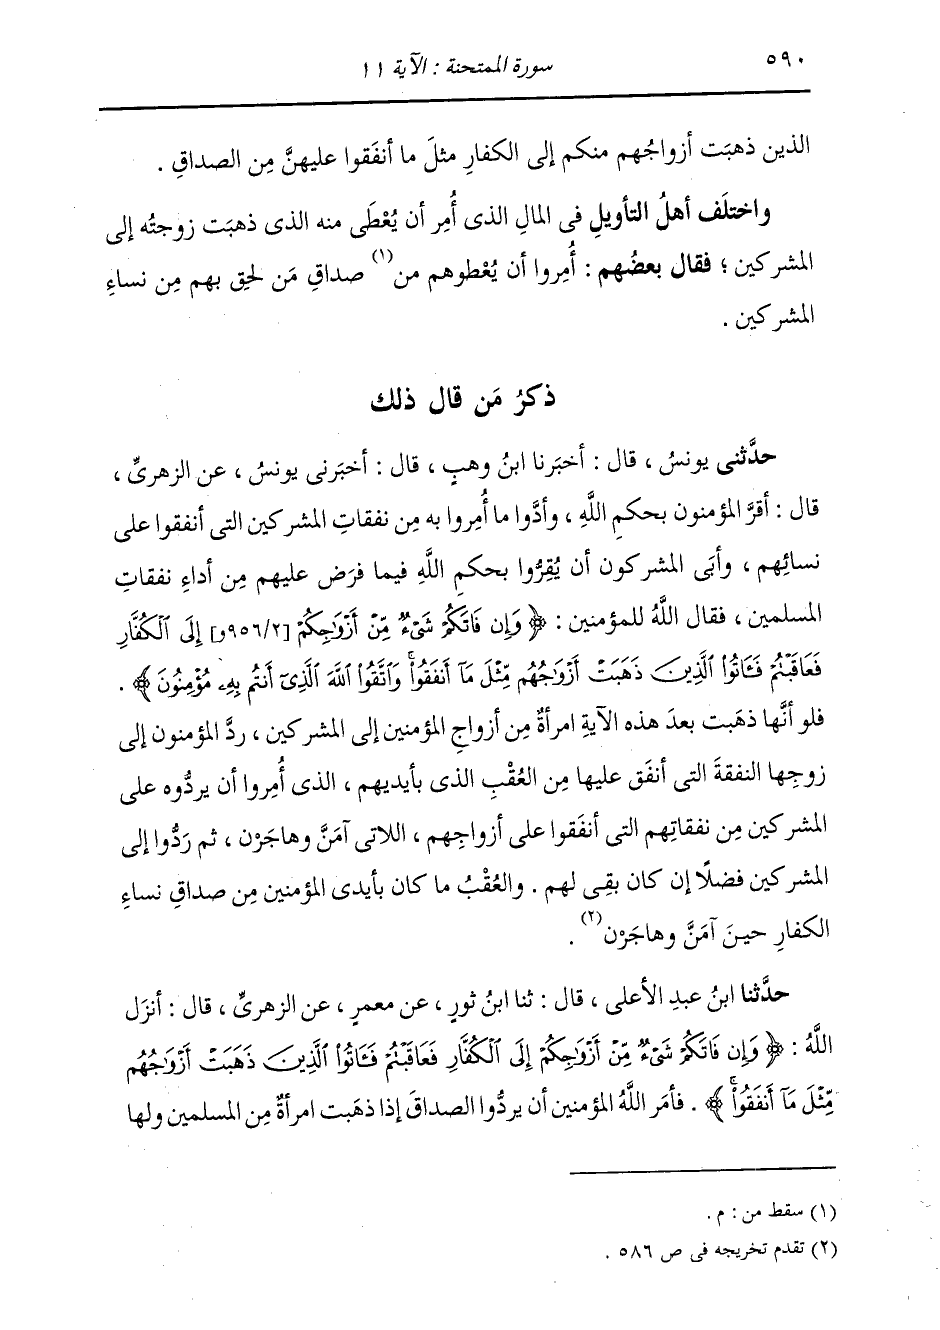 ٥٩٠
سورة الممتحنة : الآية ١١
الذين ذهبَت أزواجُهم منكم إلى الكفارِ مثلَ ما أنفَقوا عليهنَّ مِن الصداقِ .
واختلَف أهلُ التأويلِ فى المالِ الذى أُمِر أن يُعْطَى منه الذى ذهبَت زوجتُه إلى
المشركين ؛ فقال بعضُهم : أُمِروا أن يُعْطوهم من(١) صداقِ مَن لحِق بهم مِن نساءِ
المشركين .
ذكرُ مَن قال ذلك
حدَّثنى يونسُ ، قال : أخبَرنا ابنُ وهبٍ ، قال : أخبَرنى يونسُ ، عن الزهرىِّ ،
قال : أقرَّ المؤمنون بحكمِ اللَّهِ ، وأدَّوا ما أُمِروا به مِن نفقاتِ المشركين التى أنفقوا على
نسائِهم ، وأبَى المشركون أن يُقِرُّوا بحكمِ اللَّهِ فيما فرَض عليهم مِن أداءِ نفقاتِ
المسلمين ، فقال اللَّهُ للمؤمنين : ﴿ وَإِن فَاتَكُمْ شَىْءٌ مِّنْ أَزْوَٰجِكُمْ [٩٥٦/٢و] إِلَى ٱلْكُفَّارِ
فَعَاقَبْتُمْ فَـَٔاتُوا۟ ٱلَّذِينَ ذَهَبَتْ أَزْوَٰجُهُم مِّثْلَ مَآ أَنفَقُوا۟ۚ وَٱتَّقُوا۟ ٱللَّهَ ٱلَّذِىٓ أَنتُم بِهِۦ مُؤْمِنُونَ ﴾ .
فلو أنَّها ذهَبت بعدَ هذه الآيةِ امرأةٌ مِن أزواجِ المؤمنين إلى المشركين ، ردَّ المؤمنون إلى
زوجِها النفقةَ التى أنفَق عليها مِن العُقْبِ الذى بأيديهم ، الذى أُمِروا أن يردُّوه على
المشركين مِن نفقاتِهم التى أنفَقوا على أزواجِهم ، اللاتى آمَنَّ وهاجَرْن ، ثم رَدُّوا إلى
المشركين فضلًا إن كان بقِى لهم . والعُقْبُ ما كان بأيدى المؤمنين مِن صداقِ نساءِ
الكفارِ حينَ آمَنَّ وهاجَرْن(٢) .
حدَّثنا ابنُ عبدِ الأعلى ، قال : ثنا ابنُ ثورٍ ، عن معمرٍ ، عن الزهرىِّ ، قال : أنزَل
اللَّهُ : ﴿ وَإِن فَاتَكُمْ شَىْءٌ مِّنْ أَزْوَٰجِكُمْ إِلَى ٱلْكُفَّارِ فَعَاقَبْتُمْ فَـَٔاتُوا۟ ٱلَّذِينَ ذَهَبَتْ أَزْوَٰجُهُم
مِّثْلَ مَآ أَنفَقُوا۟ۚ ﴾ . فأمَر اللَّهُ المؤمنين أن يردُّوا الصداقَ إذا ذهَبت امرأةٌ مِن المسلمين ولها
(١) سقط من : م .
(٢) تقدم تخريجه فى ص ٥٨٦ .